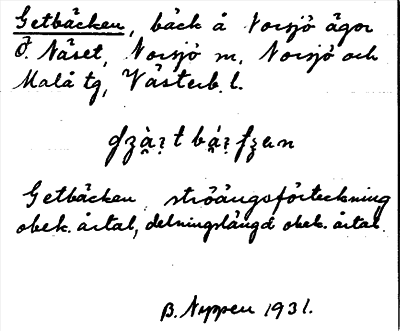 Getbäcken, bäck å Norsjö ägor
Ö. Näset, Norsjö sn, Norsjö och
Malå tg, Västerb. l.
Getbäcken ströängsförteckning
obek. årtal, delningslängd obek. årtal.
1931.